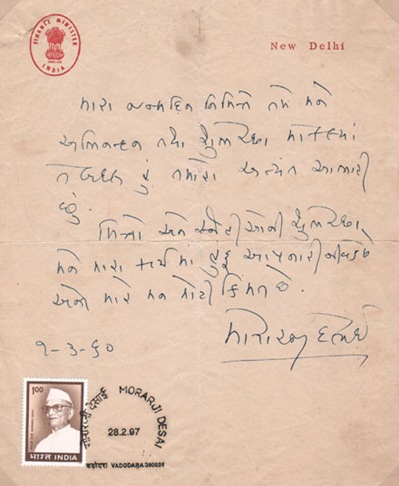 FINANCE MINISTER
INDIA
New Delhi
મારા જન્મદિન નિમિત્તે તમે મને
અભિનંદન તથા શુભેચ્છા મોકલ્યાં
તે બદલ હું તમારો અત્યંત આભારી
છું.
મિત્રો અને સ્નેહીઓની શુભેચ્છા
મને મારા કાર્યમાં આપનારી
અને મારે મન મોટી કિંમત છે.
મોરારજી દેસાઈ
૧-૩-૬૦
1.00
भारत INDIA
मोरारजी देसाई MORARJI DESAI
28.2.97
VADODARA